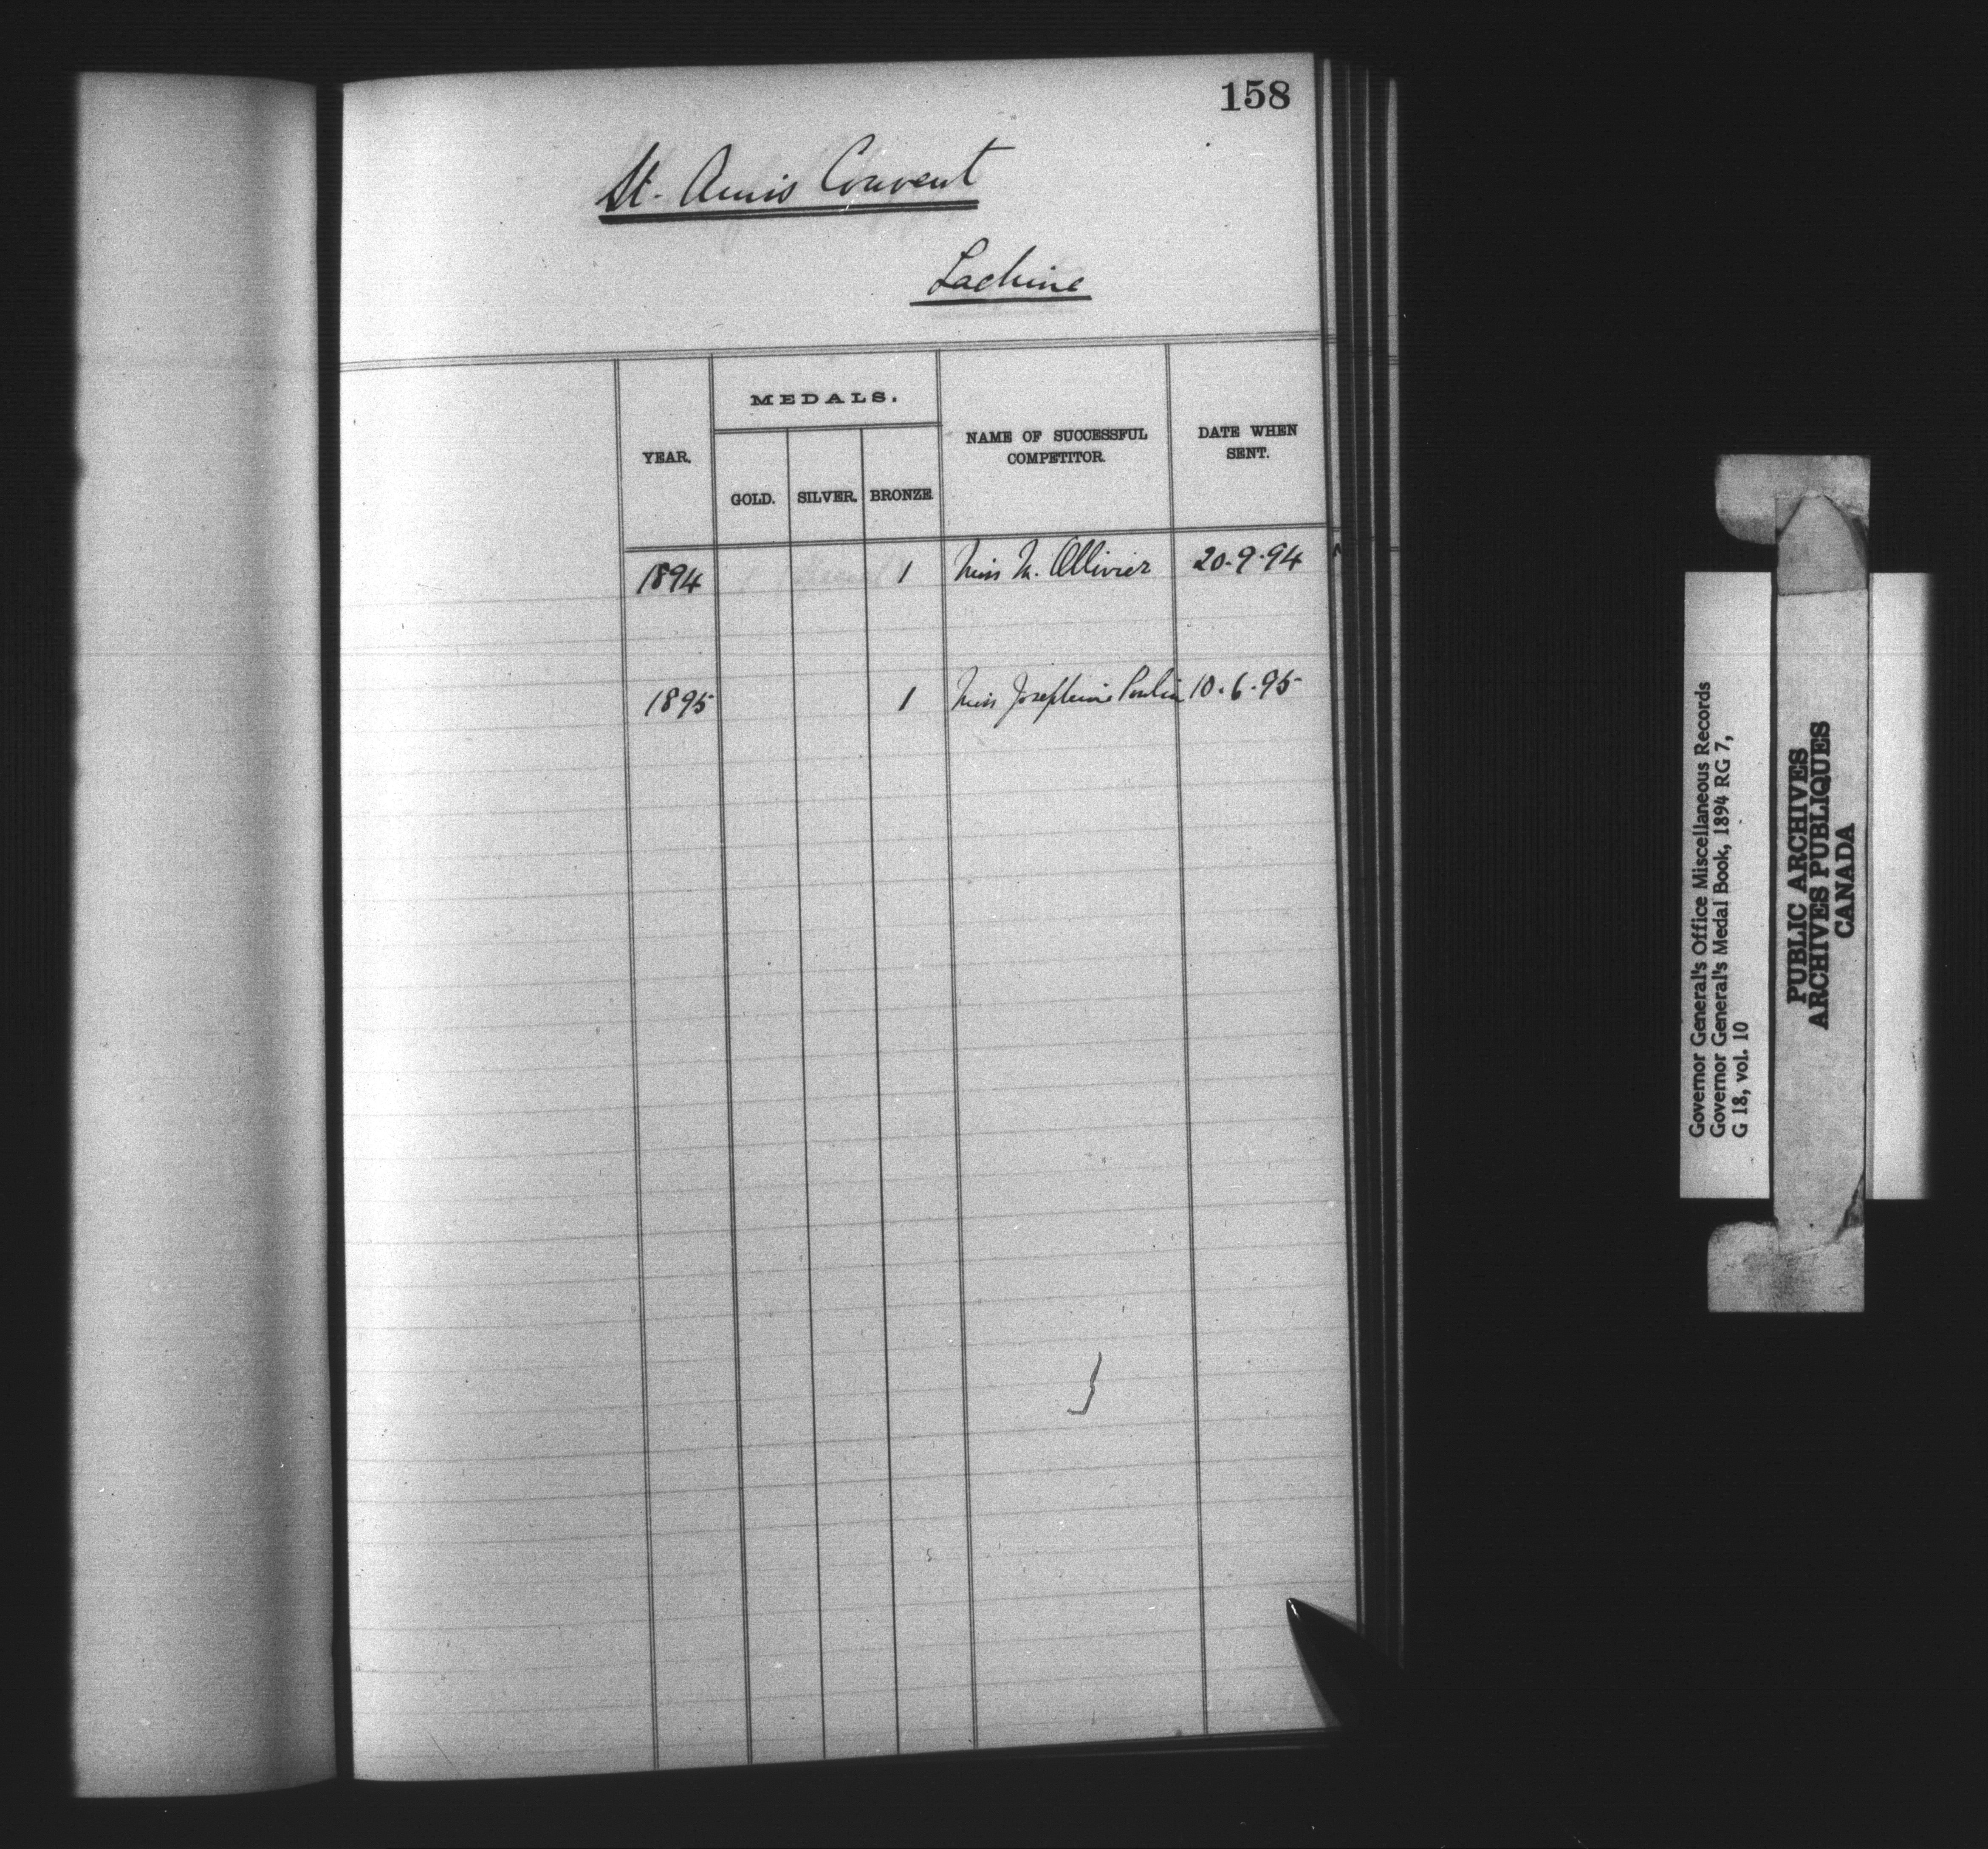 158
St. Ann's Convent
Lachine
MEDALS.
YEAR.
NAME OF SUCCESSFUL
COMPETITOR.
DATE WHEN
SENT.
GOLD. SILVER. BRONZE
1894 1 Miss M. Ollivier 20.9.94
1895 1 Miss Josephine Poulin 10.6.95
Governor General's Office Miscellaneous Records
Governor General's Medal Book, 1894 RG 7,
G 18, vol. 10
PUBLIC ARCHIVES
ARCHIVES PUBLIQUES
CANADA